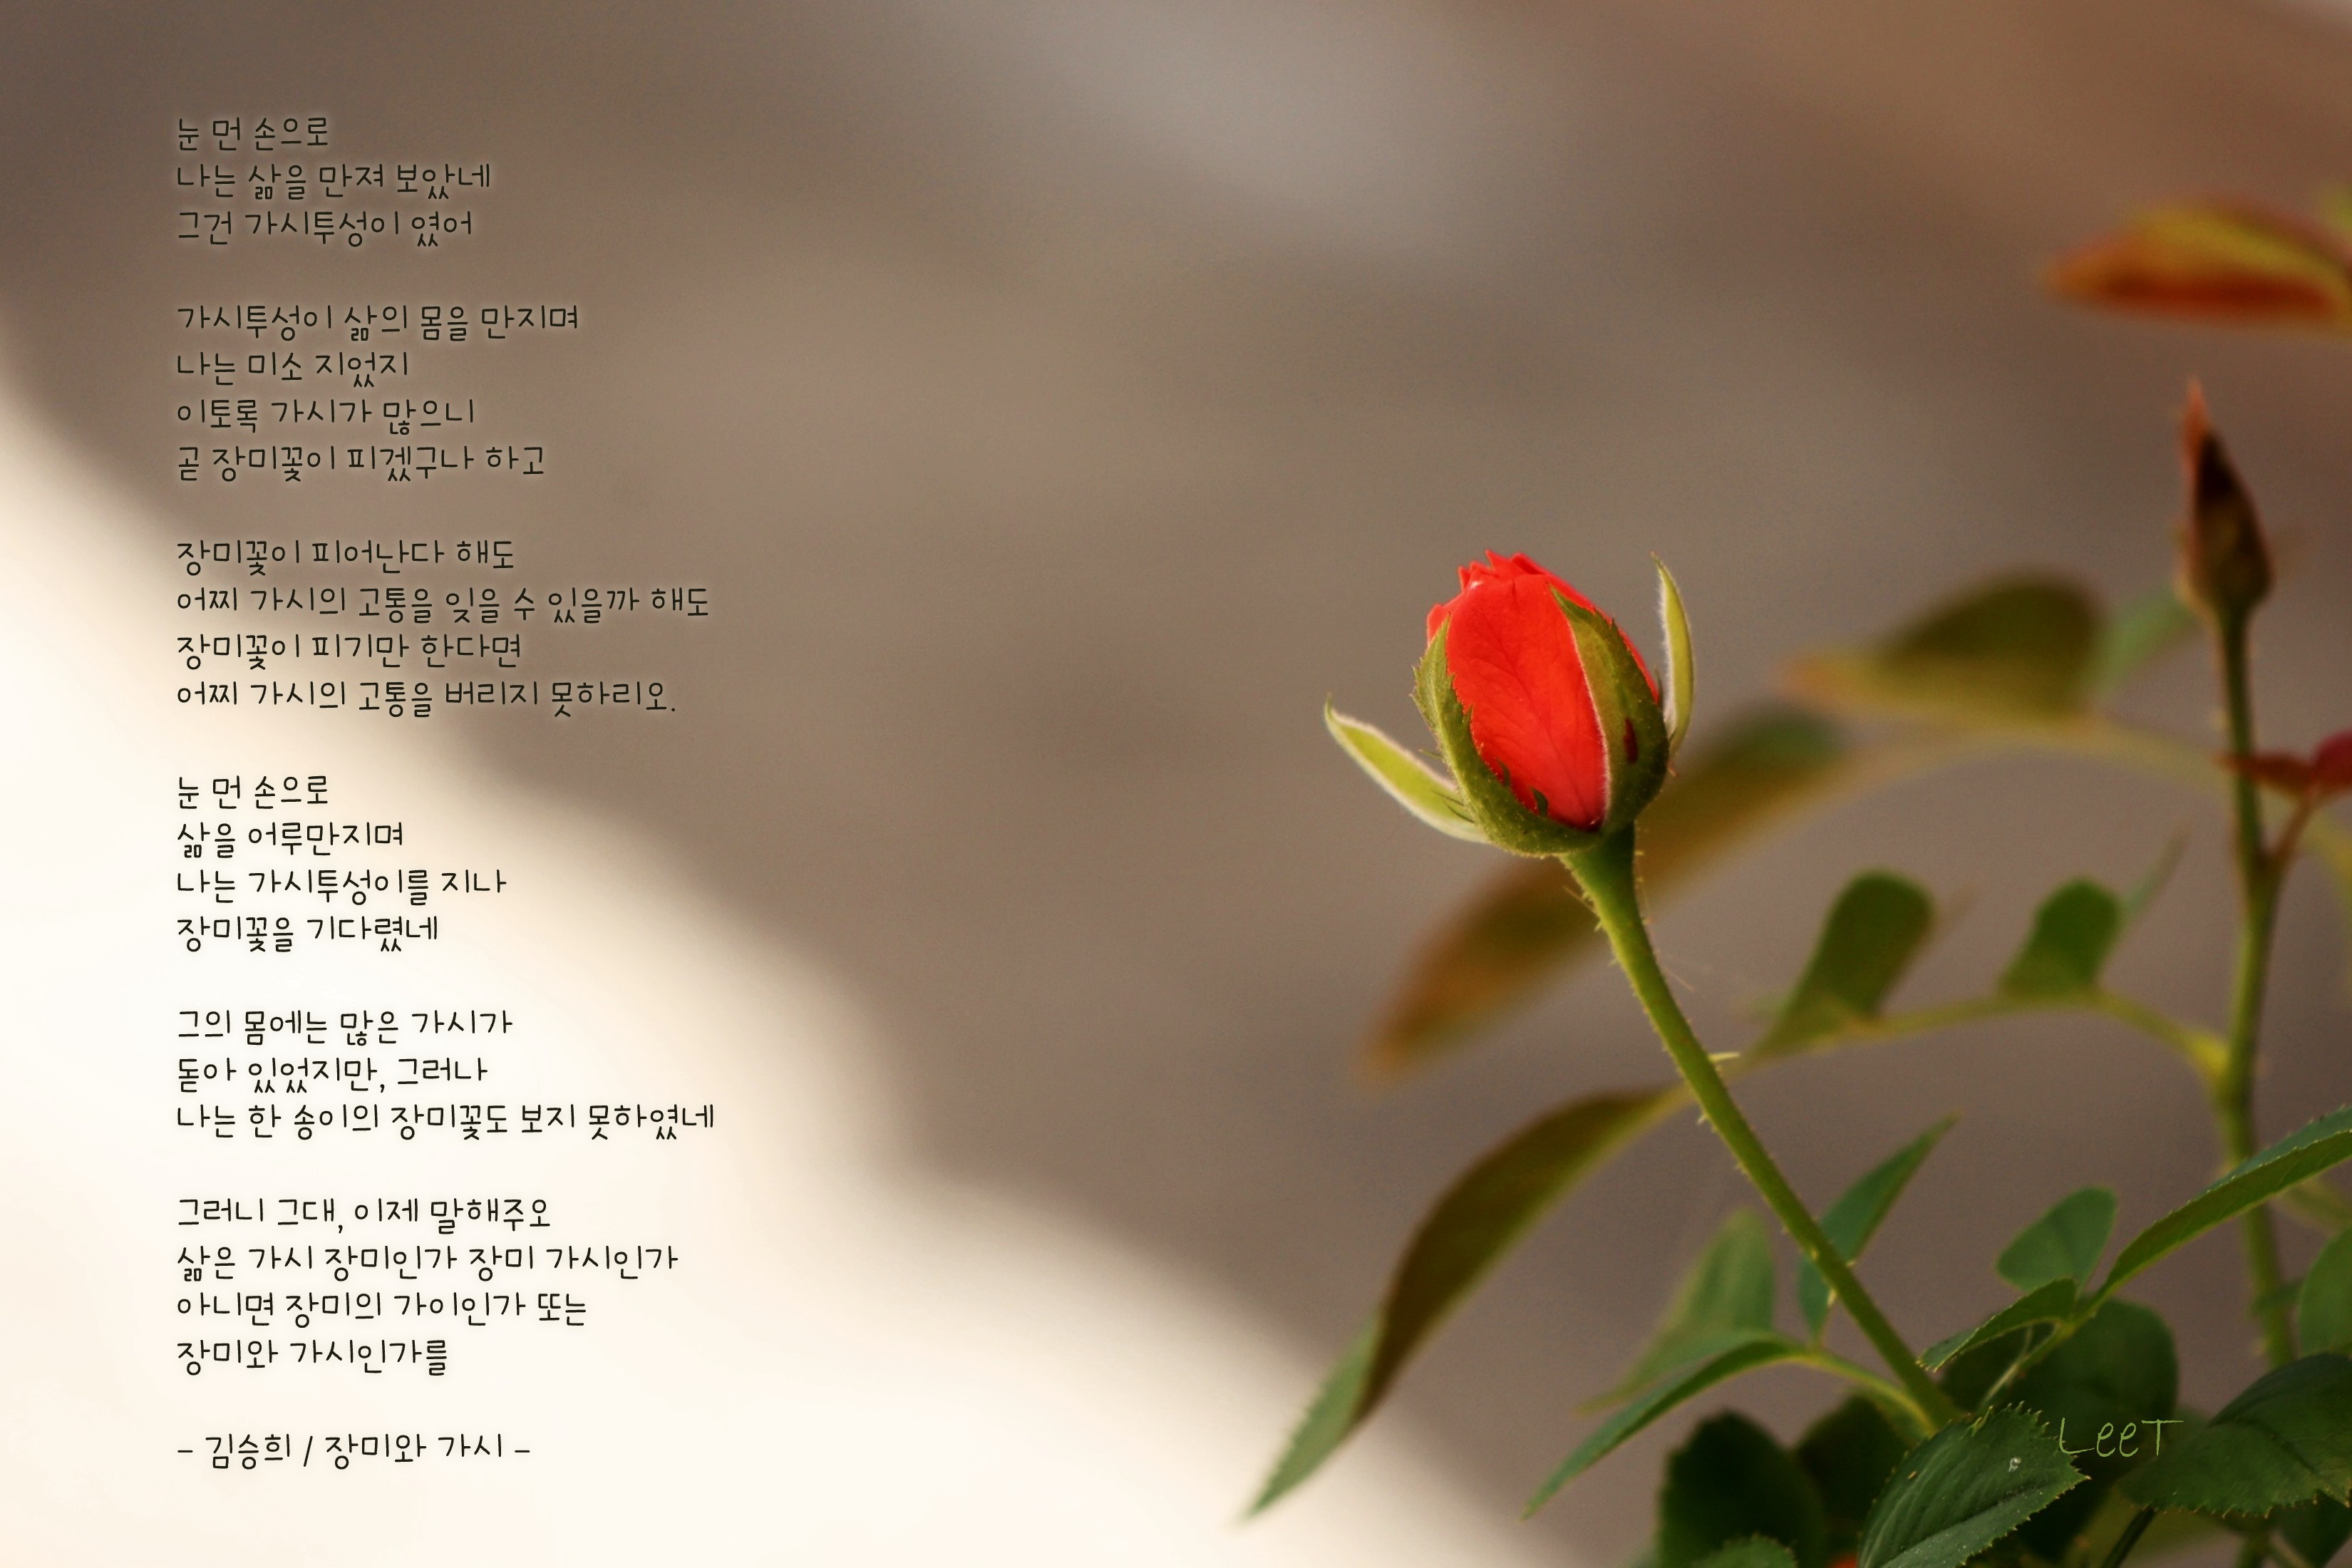 눈 먼 손으로
나는 삶을 만져 보았네
그건 가시투성이 였어
가시투성이 삶의 몸을 만지며
나는 미소 지었지
이토록 가시가 많으니
곧 장미꽃이 피겠구나 하고
장미꽃이 피어난다 해도
어찌 가시의 고통을 잊을 수 있을까 해도
장미꽃이 피기만 한다면
어찌 가시의 고통을 버리지 못하리오.
눈 먼 손으로
삶을 어루만지며
나는 가시투성이를 지나
장미꽃을 기다렸네
그의 몸에는 많은 가시가
돋아 있었지만, 그러나
나는 한 송이의 장미꽃도 보지 못하였네
그러니 그대, 이제 말해주오
삶은 가시 장미인가 장미 가시인가
아니면 장미의 가이인가 또는
장미와 가시인가를
- 김승희 / 장미와 가시 -
LeeT